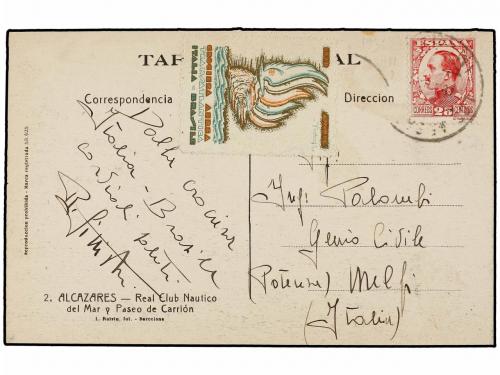 TAR AL
Correspondencia
Direccion
ESPAÑA
CORREOS 25 CENTIMOS
ITALIA - BRASILE
CROCIERA AEREA
Dalla crociera
Italia - Brasile
cordiali saluti
Ing. Palombi
Genio Civile
(Potenza) Melfi
(Italia)
Reproduccion prohibida - Marca registrada
2. ALCAZARES — Real Club Nautico
del Mar y Paseo de Carrión
Fot. - Barcelona